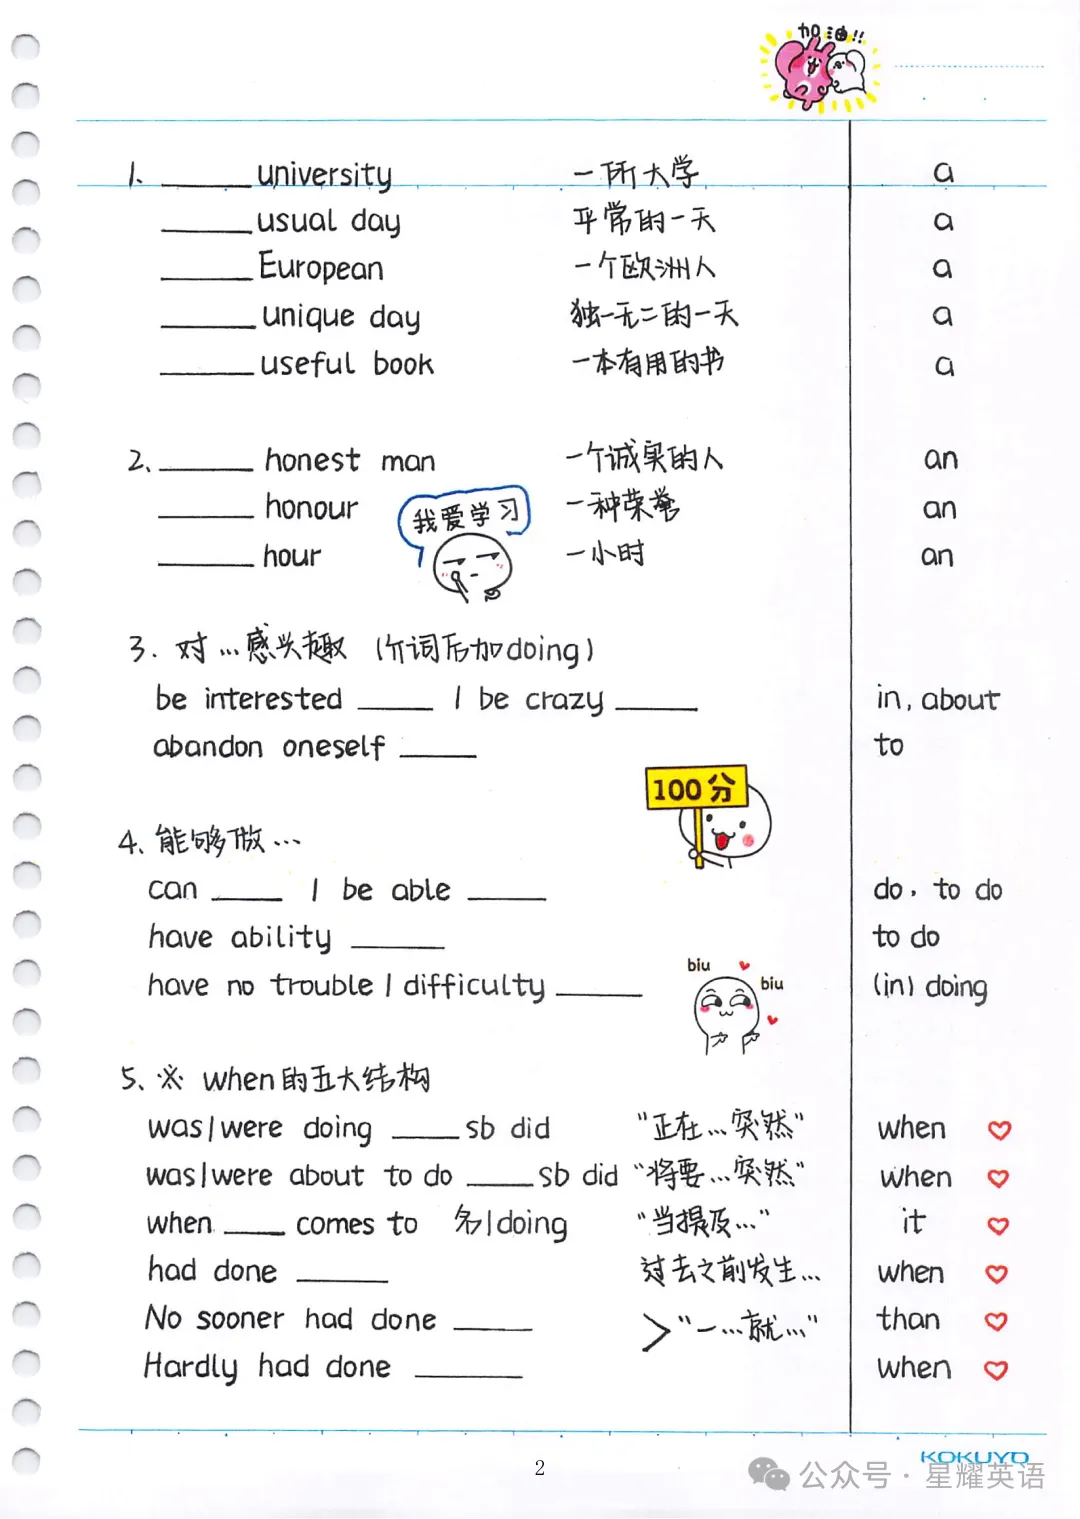 加油!!
1. ______ university 一所大学 a
______ usual day 平常的一天 a
______ European 一个欧洲人 a
______ unique day 独一无二的一天 a
______ useful book 一本有用的书 a
2、______ honest man 一个诚实的人 an
______ honour 一种荣誉 an
我爱学习
______ hour 一小时 an
3. 对…感兴趣 (介词后加doing)
be interested _____ / be crazy _____ in, about
abandon oneself _____ to
100分
4、能够做…
can _____ / be able _____ do, to do
have ability _____ to do
have no trouble / difficulty _____ (in) doing
biu biu
5、※ when的五大结构
was/were doing ____ sb did "正在…突然" when
was/were about to do ____ sb did "将要…突然" when
when ____ comes to 名/doing "当提及…" it
had done _____ 过去之前发生… when
No sooner had done _____ than
> "一…就…"
Hardly had done _____ when
KOKUYO
2
公众号 · 星耀英语